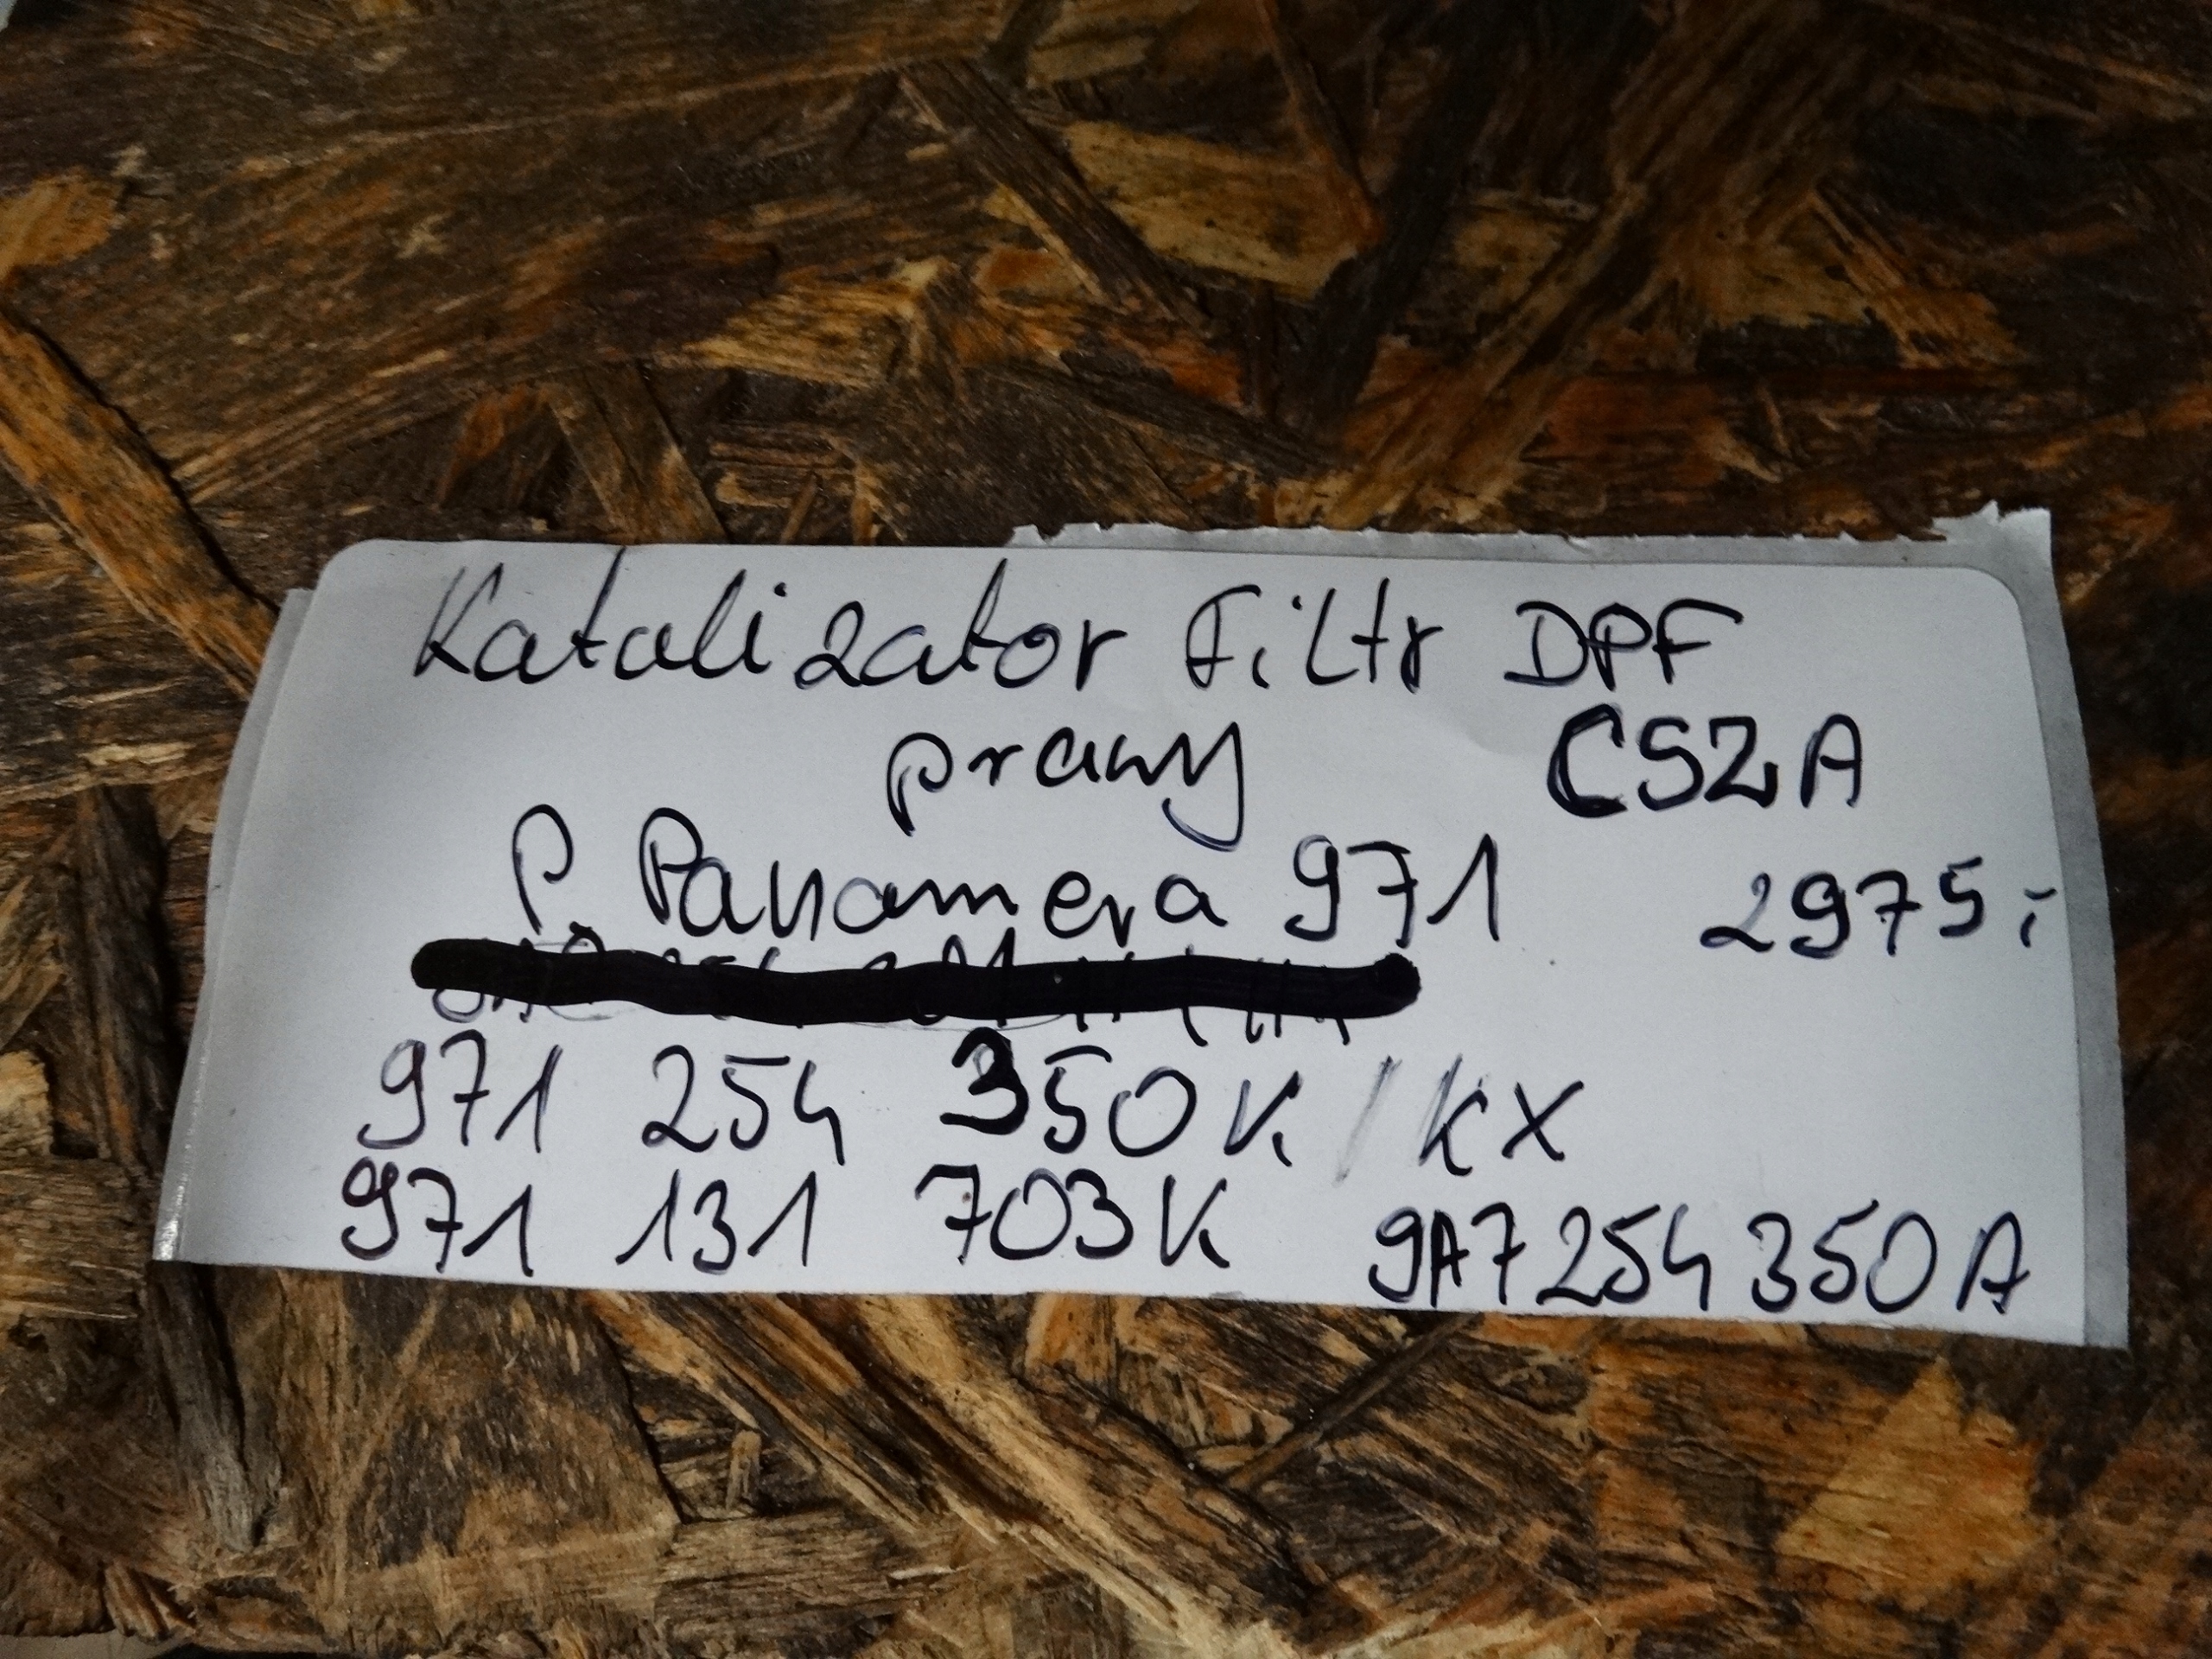 Katalizator Filtr DPF
prawy CSZA
P. Panamera 971 2975,-
971 254 350K / KX
971 131 703K 9A7 254 350 A